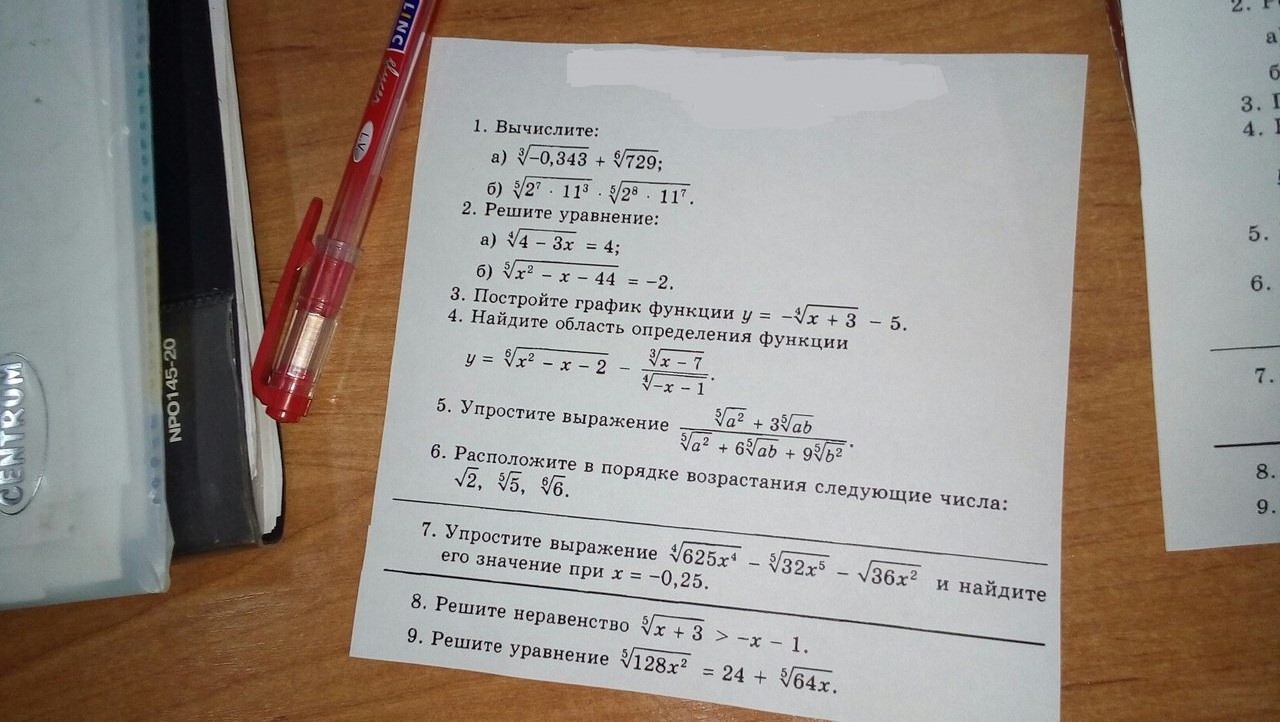 LINC
LV
CENTRUM
NPO145-20
1. Вычислите:
а) ∛-0,343 + ⁶√729;
б) ⁵√2⁷ · 11³ · ⁵√2⁸ · 11⁷.
2. Решите уравнение:
а) ⁴√4 – 3x = 4;
б) ⁵√x² – x – 44 = –2.
3. Постройте график функции y = –⁴√x + 3 – 5.
4. Найдите область определения функции
y = ⁶√x² – x – 2 – ∛x – 7 / ⁴√-x – 1.
5. Упростите выражение ⁵√a² + 3⁵√ab / ⁵√a² + 6⁵√ab + 9⁵√b².
6. Расположите в порядке возрастания следующие числа:
√2, ⁵√5, ⁶√6.
7. Упростите выражение ⁴√625x⁴ – ⁵√32x⁵ – √36x² и найдите
его значение при x = –0,25.
8. Решите неравенство ⁵√x + 3 > –x – 1.
9. Решите уравнение ⁵√128x² = 24 + ⁵√64x.
2.
а
б
3.
4.
5.
6.
7.
8.
9.